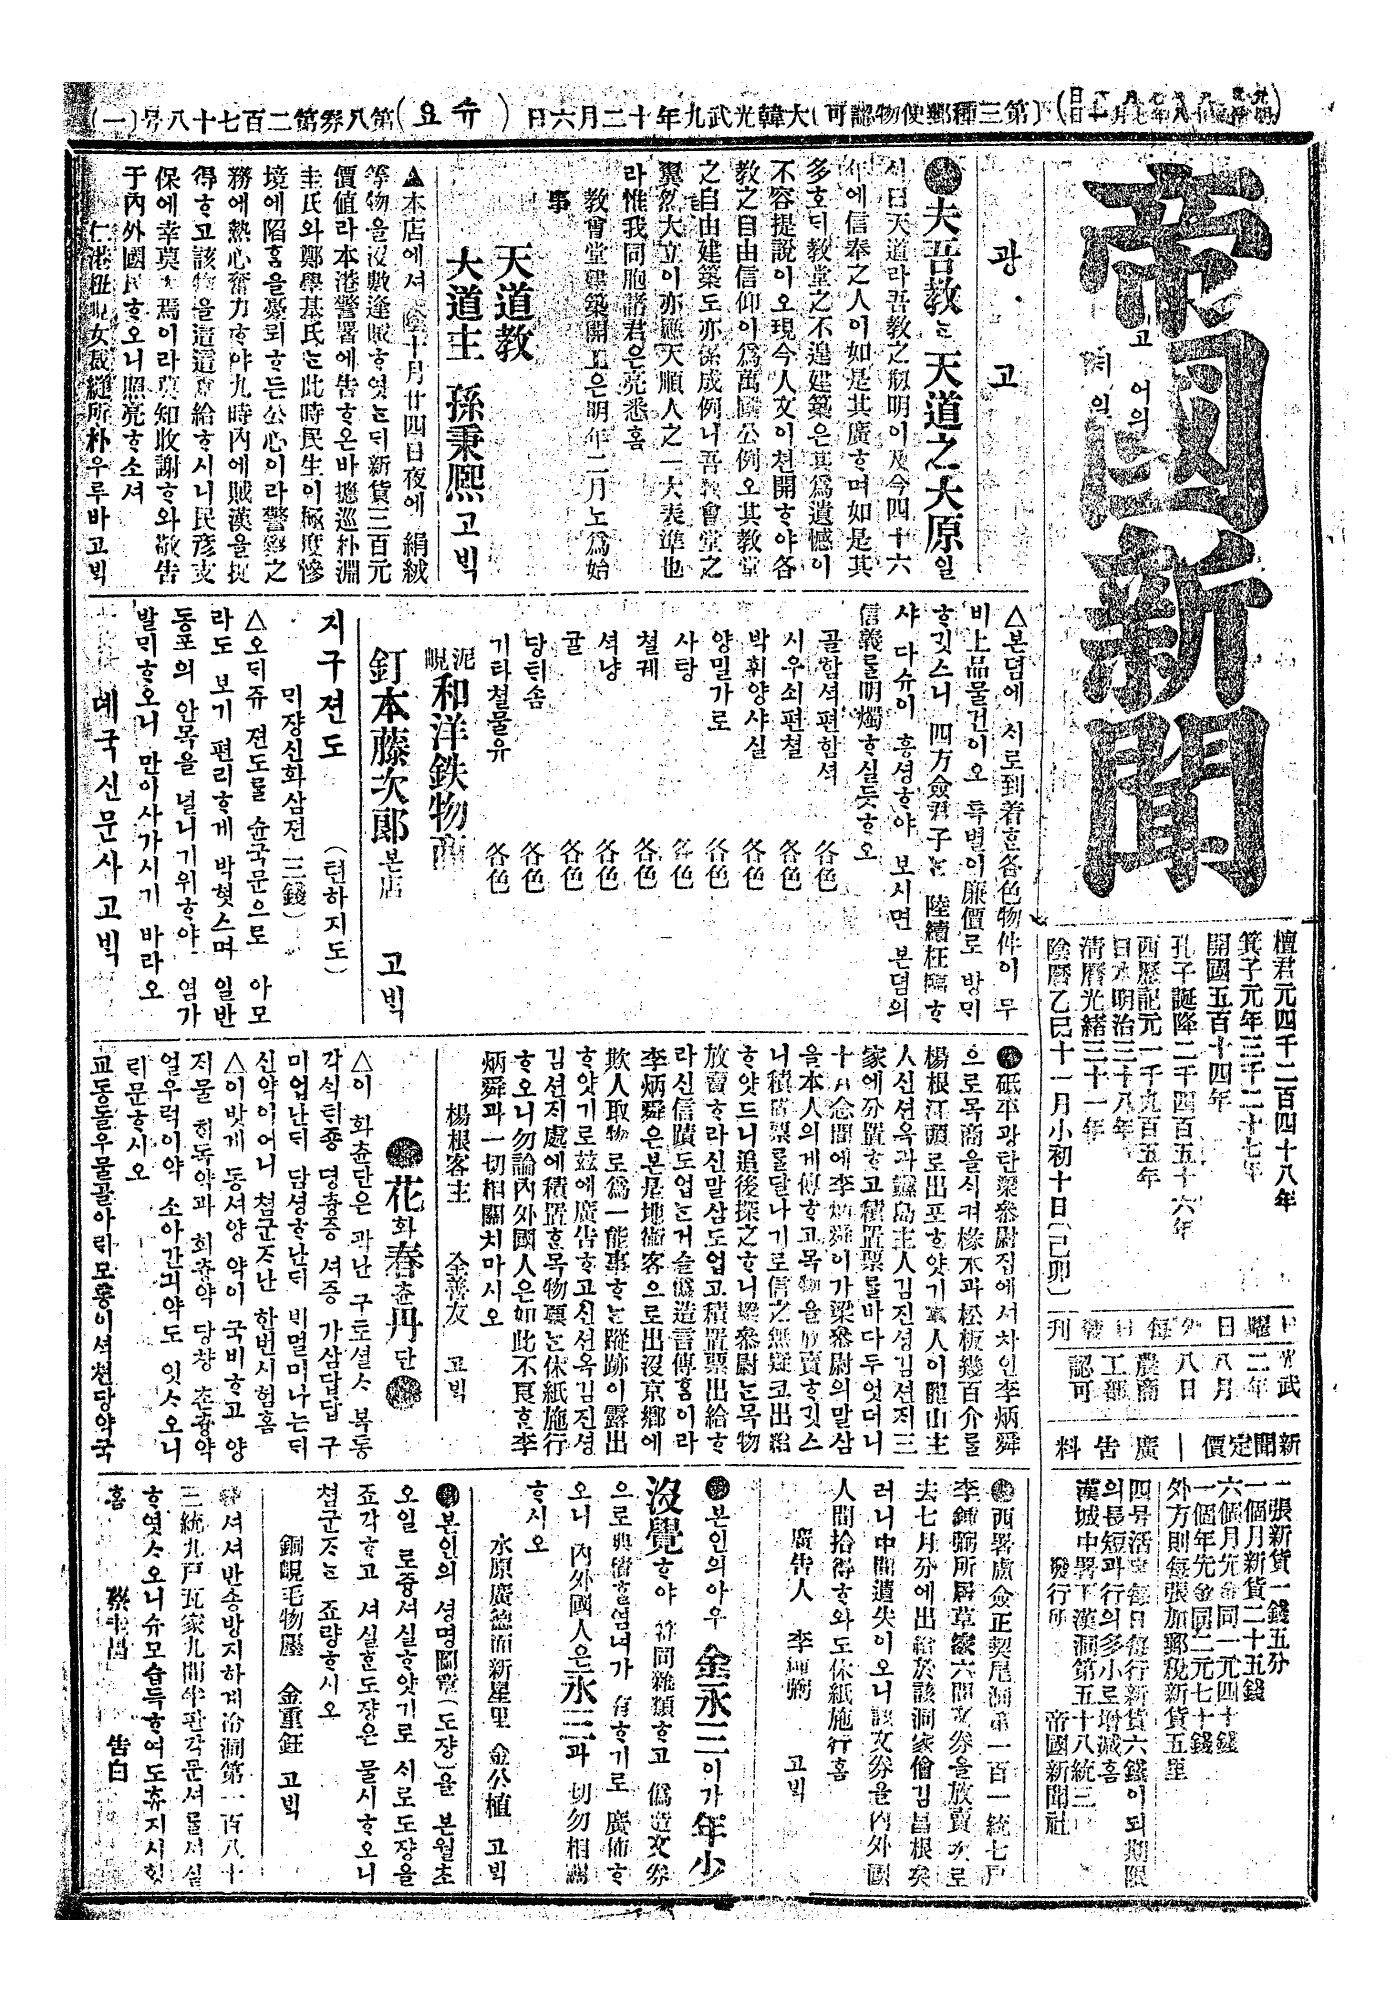 (第三種郵便物認可)大韓光武九年十二月六日
(슈요)
第八券第二百七十八号(一)
帝國新聞
檀君元四千二百四十八年
箕子元年三千二十七年
開國五百十四年
孔子誕降二千四百五十六年
西歷記元一千九百五年
日本明治三十八年
清曆光緒三十一年
陰曆乙巳十一月小初十日(己卯)
日曜日外每日發刊
光武二年八月八日
農商工部認可
新聞定價|廣告料
一張新貨一錢五分
一個月新貨二十五錢
六個月先金同一元四十錢
一個年先金同二元七十錢
外方則每張加郵稅新貨五里
四号活字每日每行新貨六錢이되期限
의長短과行의多小로增减홈
漢城中署下漢洞第五十八統三
發行所 帝國新聞社
광고
●夫吾敎ᄂᆞᆫ天道之大原일
ᄉᆡ曰天道라吾敎之刱明이及今四十六
年에信奉之人이如是其廣ᄒᆞ며如是其
多호ᄃᆡ敎堂之不遑建築은其爲遺憾이
不容提說이오現今人文이쳔開ᄒᆞ야各
敎之自由信仰이爲萬國公例오其敎堂
之自由建築도亦係成例니吾敎會堂之
翼然大立이亦應天順人之一大表準也
라惟我同胞諸君은亮悉홈
敎會堂建築開工은明年二月노爲始
事
天道敎
大道主 孫秉熙 고ᄇᆡᆨ
▲本店에셔 陰十月廿四日夜에 絹絨
等物을沒數逢賊ᄒᆞ엿ᄂᆞᆫᄃᆡ新貨三百元
價値라本港警署에告ᄒᆞ온바摠巡朴淵
圭氏와鄭學基氏ᄂᆞᆫ此時民生이極度慘
境에陷홈을憂慮ᄒᆞ든公心이라警察之
務에熱心奮力ᄒᆞ야九時內에賊漢을捉
得ᄒᆞ고該物을這這覔給ᄒᆞ시니民彦支
保에幸莫大焉이라莫知收謝ᄒᆞ와敬告
于內外國民ᄒᆞ오니照亮ᄒᆞ소셔
仁港杻峴女裁縫所朴우루바고ᄇᆡᆨ
△본뎜에 시로到着ᄒᆞᆫ各色物件이 무
비上品물건이오 특별이廉價로 방ᄆᆡ
ᄒᆞ깃스니 四方僉君子ᄂᆞᆫ 陸續枉臨ᄒᆞ
샤 다슈이 흥셩ᄒᆞ야 보시면 본뎜의
信義를明燭ᄒᆞ실듯ᄒᆞ오
골함셕편함셕 各色
시우쇠편쳘 各色
박휘양샤실 各色
양밀가로 各色
사탕 各色
쳘궤 各色
셕냥 各色
귤 各色
당ᄐᆡ솜 各色
기타쳘물유 各色
泥峴和洋鉄物商
釘本藤次郞본店 고ᄇᆡᆨ
지구젼도 (텬하지도)
ᄆᆡ쟝신화삼젼 三錢)
△오ᄃᆡ쥬 젼도를 슌국문으로 아모
라도 보기 편리ᄒᆞ게 박혓스며 일반
동포의 안목을 널니기위ᄒᆞ야 염가
발ᄆᆡᄒᆞ오니 만이사가시기 바라오
뎨국신문사 고ᄇᆡᆨ
●砥平광탄梁叅尉집에서차인李炳舜
으로목商을식켜椽木과松板幾百介를
楊根江頭로出포ᄒᆞ얏기本人이龍山主
人신션옥과纛島主人김진셩김션지三
家에分置ᄒᆞ고積置票를바다두엇더니
十月念間에李炳舜이가梁叅尉의말삼
을本人의게傳ᄒᆞ고목物을放賣ᄒᆞ깃스
니積置票를달나기로信之無疑코出給
ᄒᆞ얏드니追後探之ᄒᆞ니梁叅尉ᄂᆞᆫ목物
放賣ᄒᆞ라신말삼도업고積置票出給ᄒᆞ
라신信蹟도업ᄂᆞᆫ거슬僞造言傳홈이라
李炳舜은본是地術客으로出沒京鄕에
欺人取物로爲一能事ᄒᆞᄂᆞᆫ蹤跡이露出
ᄒᆞ얏기로玆에廣告ᄒᆞ고신션옥김진셩
김션지處에積置ᄒᆞᆫ목物票ᄂᆞᆫ休紙施行
ᄒᆞ오니勿論內外國人은如此不良ᄒᆞᆫ李
炳舜과一切相關치마시오
楊根客主 全善友 고ᄇᆡᆨ
●花화春츈丹단●
△이 화츈단은 곽난 구토셜ᄉᆞ 복통
각식ᄐᆡ죵 명츙증 셔증 가삼답답 구
미업난ᄃᆡ 담셩ᄒᆞ난ᄃᆡ ᄇᆡ멀미나는ᄃᆡ
신약이어니 쳠군ᄌᆞ난 한번시험홈
△이밧게 동셔양 약이 국비ᄒᆞ고 양
저물 회동약과 회츙약 당창 츈챵약
얼우럭이약 소아간긔약도 잇ᄉᆞ오니
ᄅᆡ문ᄒᆞ시오
교동돌우물골아ᄅᆡ모퉁이셔쳔당약국
●西署盧僉正契尾洞第一百一統七戶
李鍾弼所居草家六間文券을放賣次로
去七月分에出給於該洞家儈김昌根矣
러니中間遺失이오니該文券을內外國
人間拾得ᄒᆞ와도休紙施行홈
廣告人 李鍾弼 고ᄇᆡᆨ
●본인의아우金永三이가年少
沒覺ᄒᆞ야 符同雜類ᄒᆞ고 僞造文券
으로典當ᄒᆞᆯ염녀가 有ᄒᆞ기로 廣佈ᄒᆞ
오니 內外國人은永三과 切勿相關
ᄒᆞ시오
水原廣德面新星里 金公植 고ᄇᆡᆨ
●본인의 셩명圖章(도쟝)을 본월초
오일 로즁셔실ᄒᆞ얏기로 시로도쟝을
죠각ᄒᆞ고 셔실ᄒᆞᆫ도쟝은 물시ᄒᆞ오니
쳠군ᄌᆞᄂᆞᆫ 죠량ᄒᆞ시오
銅峴毛物廛 金重鈺 고ᄇᆡᆨ
셔셔반송방지하계冶洞第一百八十
三統九戶瓦家九間半판각문셔를셔실
ᄒᆞ엿ᄉᆞ오니슈모습득ᄒᆞ여도휴지시ᄒᆡᆼ
홈
告白